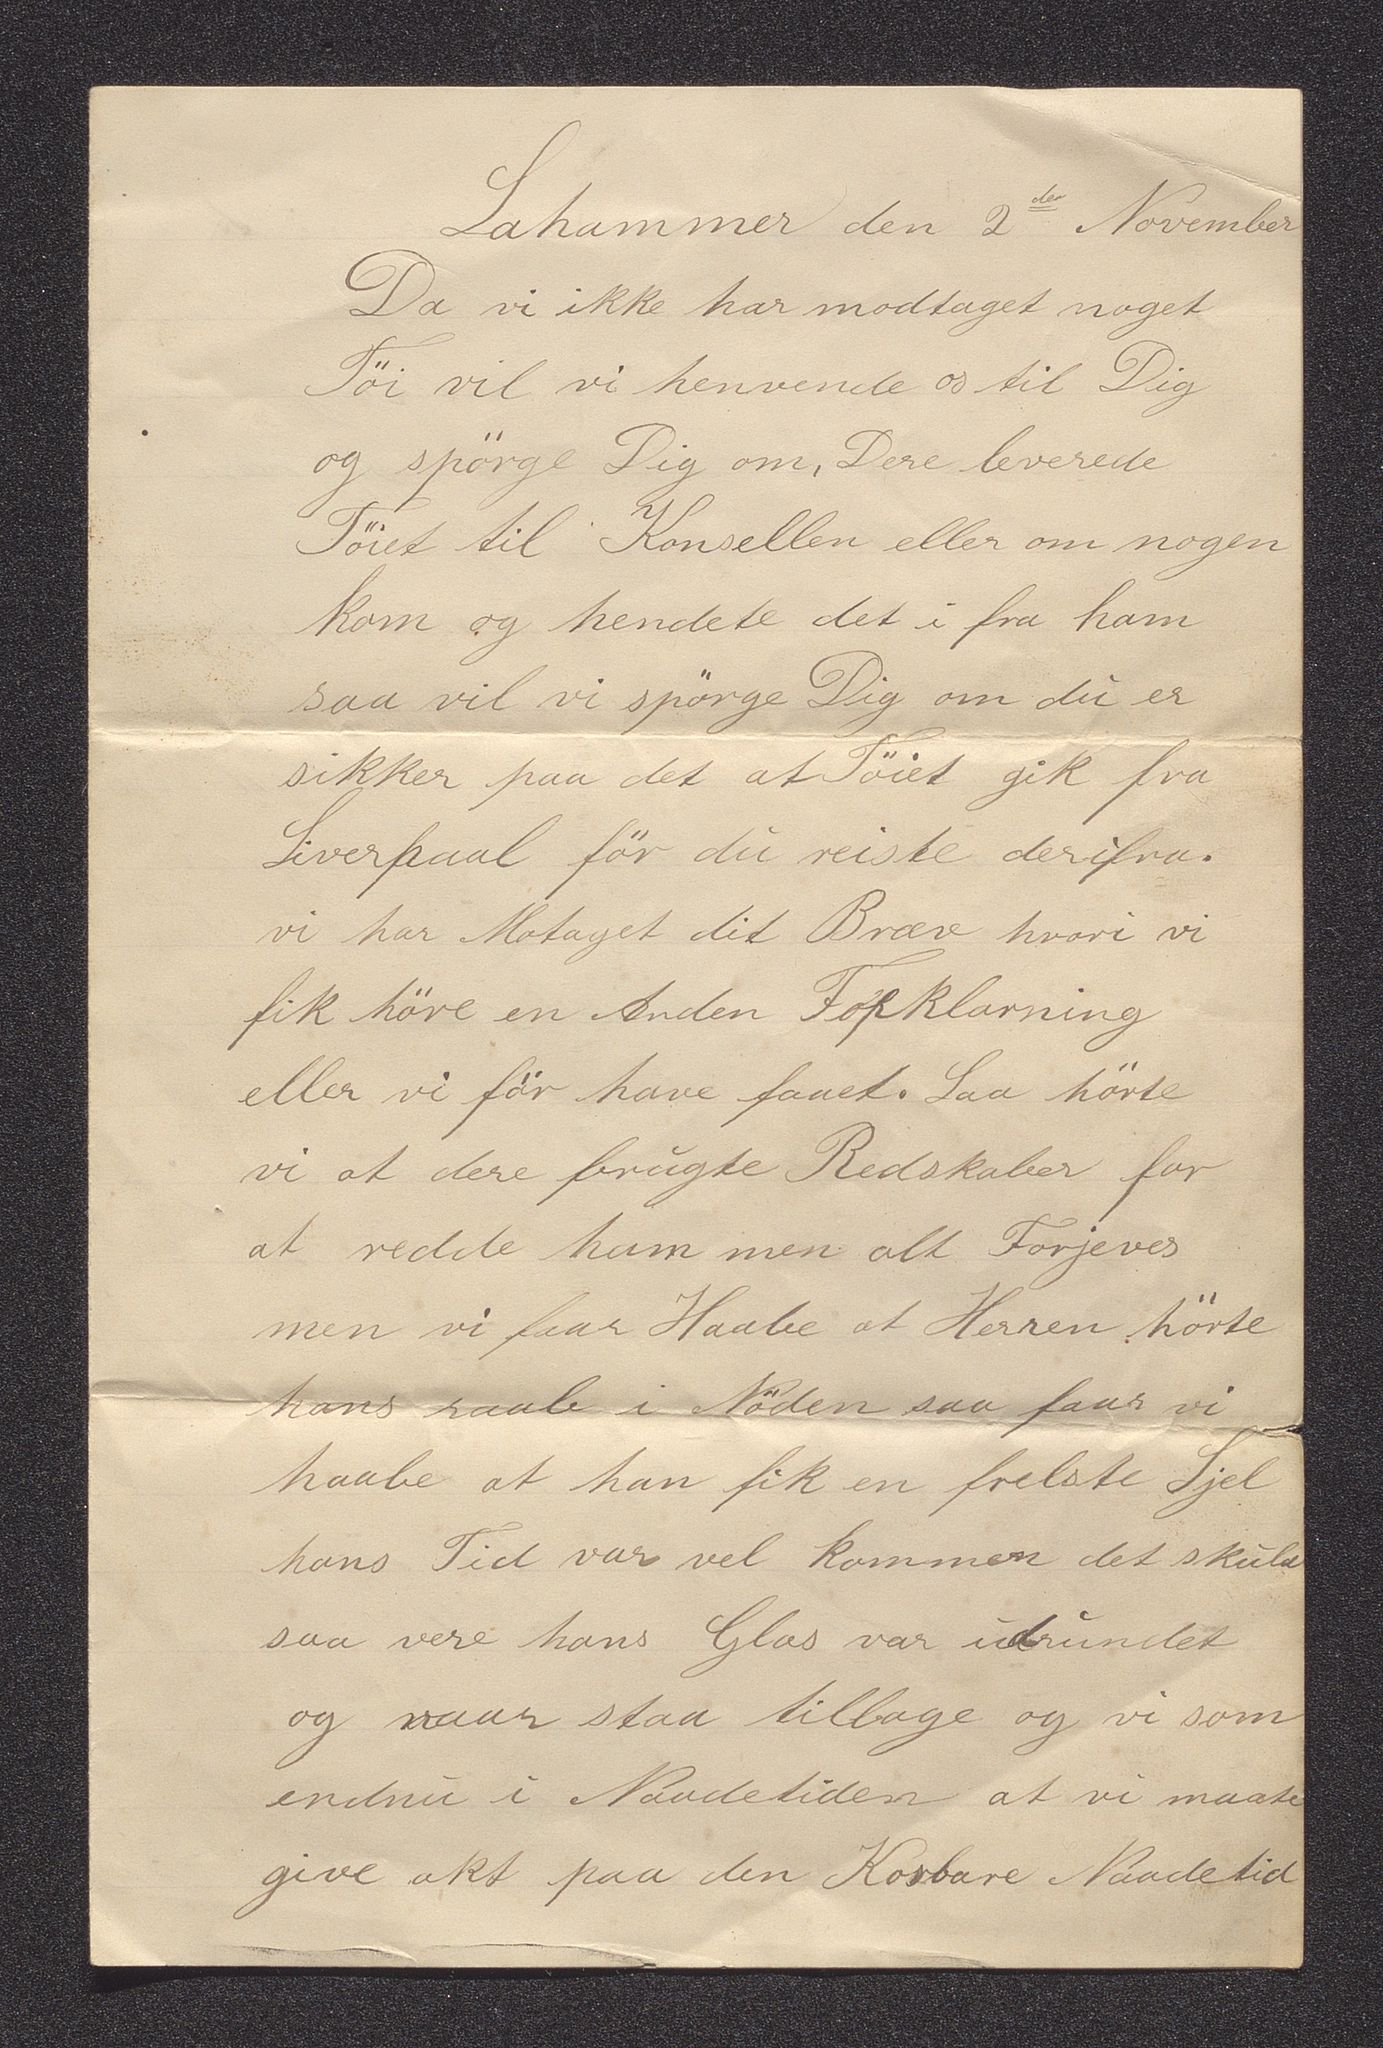 Lahammer den 2den November
Da vi ikke har modtaget noget
Töi vil vi henvende os til Dig
og spörge Dig om, Dere leverede
Töiet til Konsellen eller om nogen
kom og hendete det i fra ham
saa vil vi spörge Dig om du er
sikker paa det at Töiet gik fra
Liverpaal för du reiste derifra.
vi har Motaget dit Bræv hvori vi
fik höre en Anden Forklarning
eller vi för have faaet. Saa hörte
vi at dere brugte Redskaber for
at redde ham men alt Forjeves
men vi faar Haabe at Herren hörte
hans raab i Nöden saa faar vi
haabe at han fik en frelste Sjel
hans Tid var vel kommen det skuld
saa vere hans Glas var udrundet
og vaar staa tilbage og vi som
endnu i Naadetiden at vi maate
give akt paa den Kosbare Naadetid